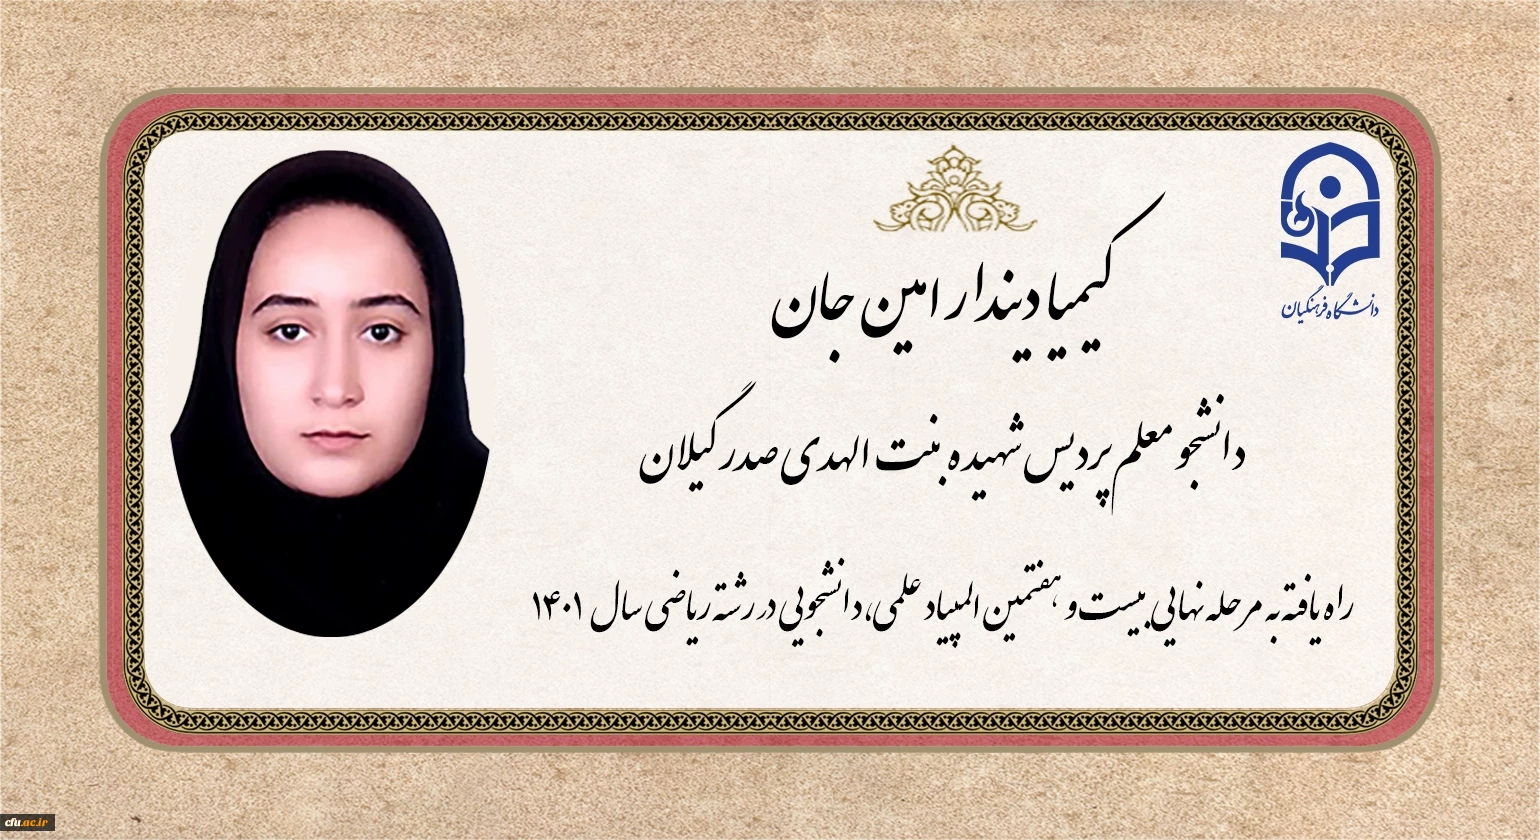 دانشگاه فرهنگیان
کیمیا دیندار امین جان
دانشجو معلم پردیس شهیده بنت الهدی صدر گیلان
راه یافته به مرحله نهایی بیست و هفتمین المپیاد علمی، دانشجویی در رشته ریاضی سال ۱۴۰۱
cfu.ac.ir